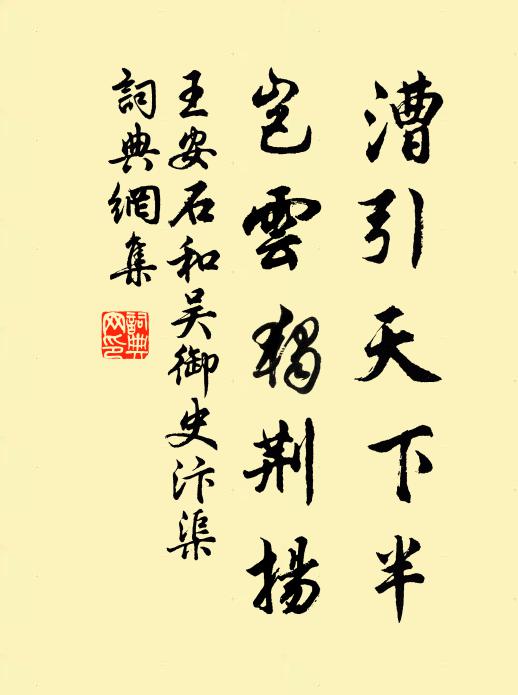 漕引天下半
岂雲獨荆揚
王安石和吴御史汴渠
詞典網集
詞典网印